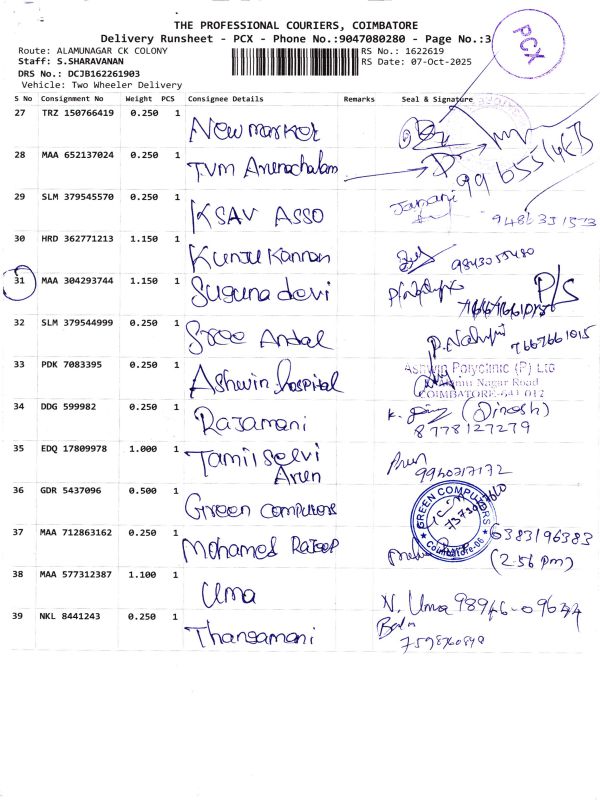 THE PROFESSIONAL COURIERS, COIMBATORE
Delivery Runsheet - PCX - Phone No.:9047080280 - Page No.:3
PCX
Route: ALAMUNAGAR CK COLONY
RS No.: 1622619
Staff: S.SHARAVANAN
RS Date: 07-Oct-2025
DRS No.: DCJB162261903
Vehicle: Two Wheeler Delivery
S No Consignment No Weight PCS Consignee Details Remarks Seal & Signature
27 TRZ 150766419 0.250 1 New market
28 MAA 652137024 0.250 1 TVM Arunachalam
29 SLM 379545570 0.250 1 KSAV ASSO Janani 9486331573
30 HRD 362771213 1.150 1 Kunju Kannan 9843055480
31 MAA 304293744 1.150 1 Suguna devi P/S
32 SLM 379544999 0.250 1 Sree Andal 7667661015
33 PDK 7083395 0.250 1 Ashwin hospital Ashwin Polyclinic (P) Ltd
Nagar Road
COIMBATORE-641 012
34 DDG 599982 0.250 1 Rajamani K. (Dinesh)
8778127279
35 EDQ 17809978 1.000 1 Tamilselvi
Arun Arun 9940217172
36 GDR 5437096 0.500 1 Green computers GREEN COMPUTERS
Coimbatore-
37 MAA 712863162 0.250 1 Mohamed Rajeep 6383196383
(2:56 pm)
38 MAA 577312387 1.100 1 Uma N. Uma 98946-09644
39 NKL 8441243 0.250 1 Thangamani